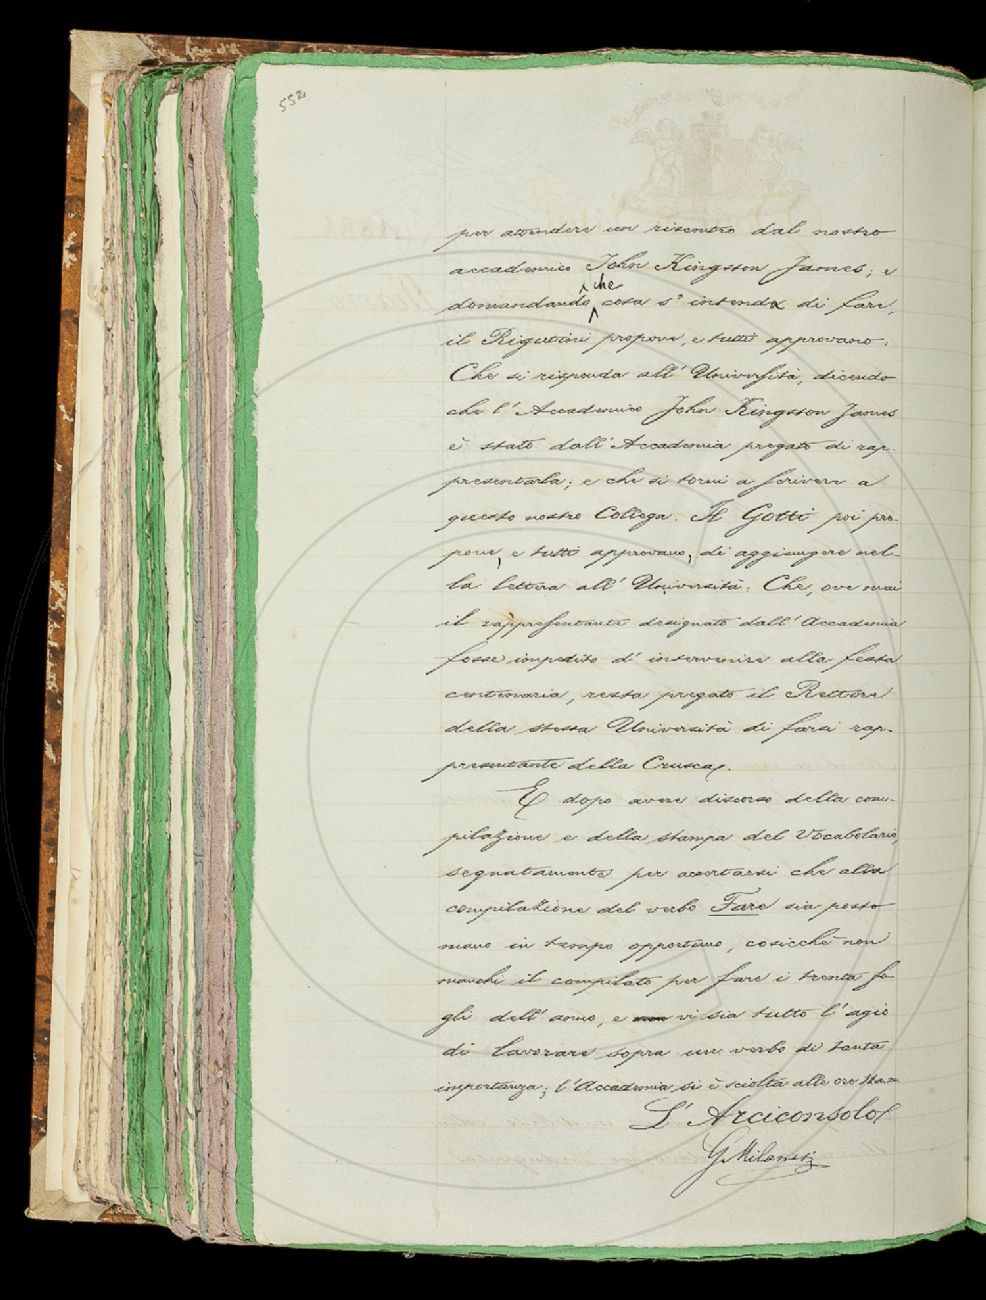 552
per attendere un riscontro dal nostro
accademico John Kingston James; e
domandando che cosa s' intenda di fare,
il Rigutini propone, e tutti approvano:
Che si risponda all' Università, dicendo
che l' Accademico John Kingston James
è stato dall' Accademia pregato di rap-
presentarla; e che si torni a scrivere a
questo nostro Collega. Il Gotti poi pro-
pone, e tutti approvano, di aggiungere nel-
la lettera all' Università: Che, ove mai
il rappresentante designato dall' Accademia
fosse impedito d' intervenire alla festa
centenaria, resta pregato il Rettore
della stessa Università di farsi rap-
presentante della Crusca.
E dopo avere discorso della com-
pilazione e della stampa del Vocabolario,
segnatamente per accertarsi che alla
compilazione del verbo Fare sia posto
mano in tempo opportuno, cosicchè non
manchi il compilato per fare i trenta fo
gli dell' anno, e non vi sia tutto l' agio
di lavorare sopra un verbo di tanta
importanza; l' Accademia si è sciolta alle ore
L' Arciconsolo
G Milanesi